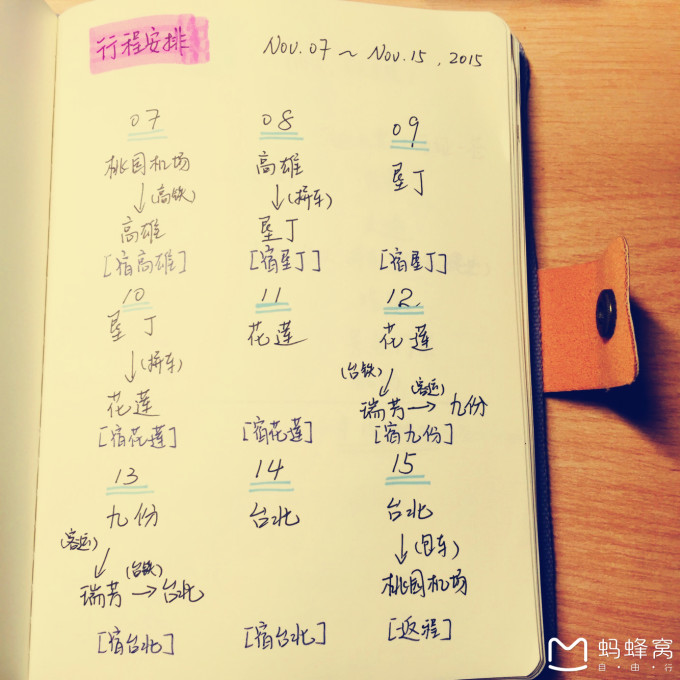 行程安排 Nov.07 ~ Nov.15, 2015
07
桃园机场
↓(高铁)
高雄
[宿高雄]
08
高雄
↓(拼车)
垦丁
[宿垦丁]
09
垦丁
[宿垦丁]
10
垦丁
↓(拼车)
花莲
[宿花莲]
11
花莲
[宿花莲]
12
花莲
(台铁)↓
瑞芳 →(客运) 九份
[宿九份]
13
九份
(客运)↓
瑞芳 →(台铁) 台北
[宿台北]
14
台北
[宿台北]
15
台北
↓(包车)
桃园机场
[返程]
蚂蜂窝
自·由·行